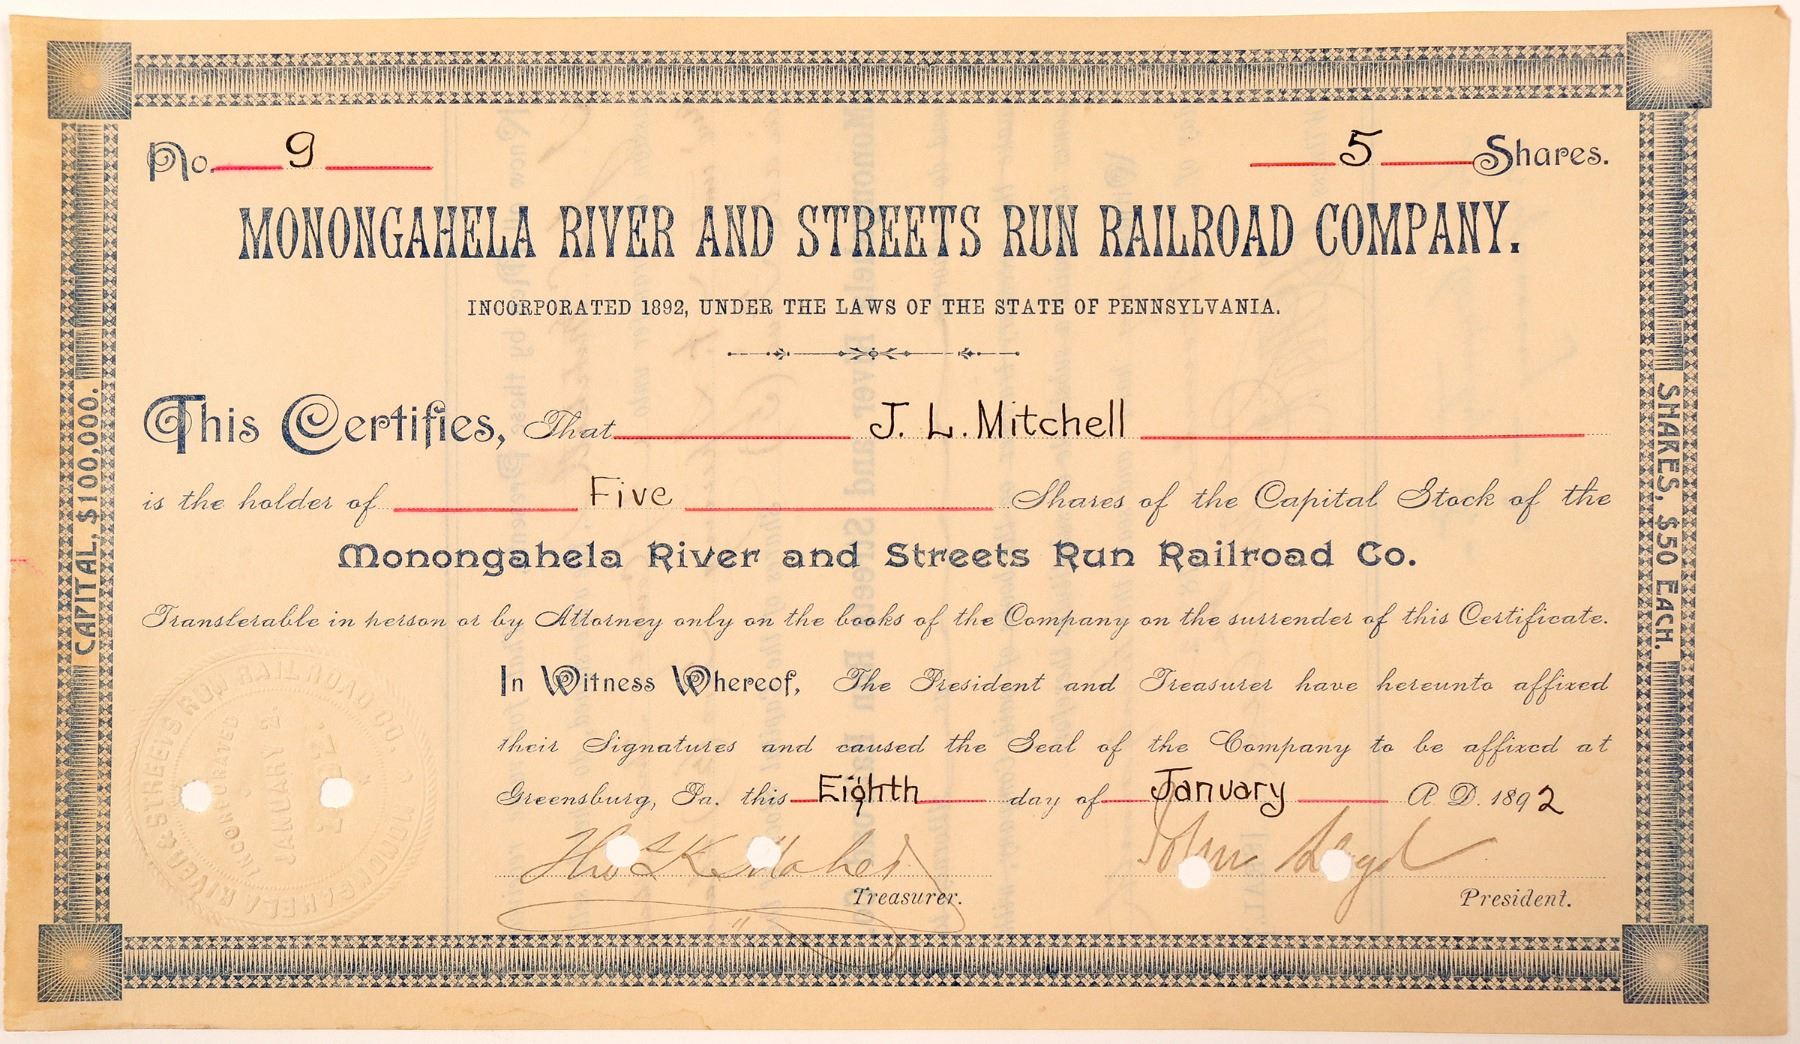 No. 9
5 Shares.
MONONGAHELA RIVER AND STREETS RUN RAILROAD COMPANY.
INCORPORATED 1892, UNDER THE LAWS OF THE STATE OF PENNSYLVANIA.
This Certifies, That J. L. Mitchell
is the holder of Five Shares of the Capital Stock of the
Monongahela River and Streets Run Railroad Co.
Transferable in person or by Attorney only on the books of the Company on the surrender of this Certificate.
In Witness Whereof, The President and Treasurer have hereunto affixed
their Signatures and caused the Seal of the Company to be affixed at
Greensburg, Pa. this Eighth day of January A. D. 1892
John Lloyd
Treasurer.
President.
CAPITAL, $100,000.
SHARES, $50 EACH.
MONONGAHELA RIVER & STREETS RUN RAILROAD CO.
INCORPORATED
JANUARY 2.